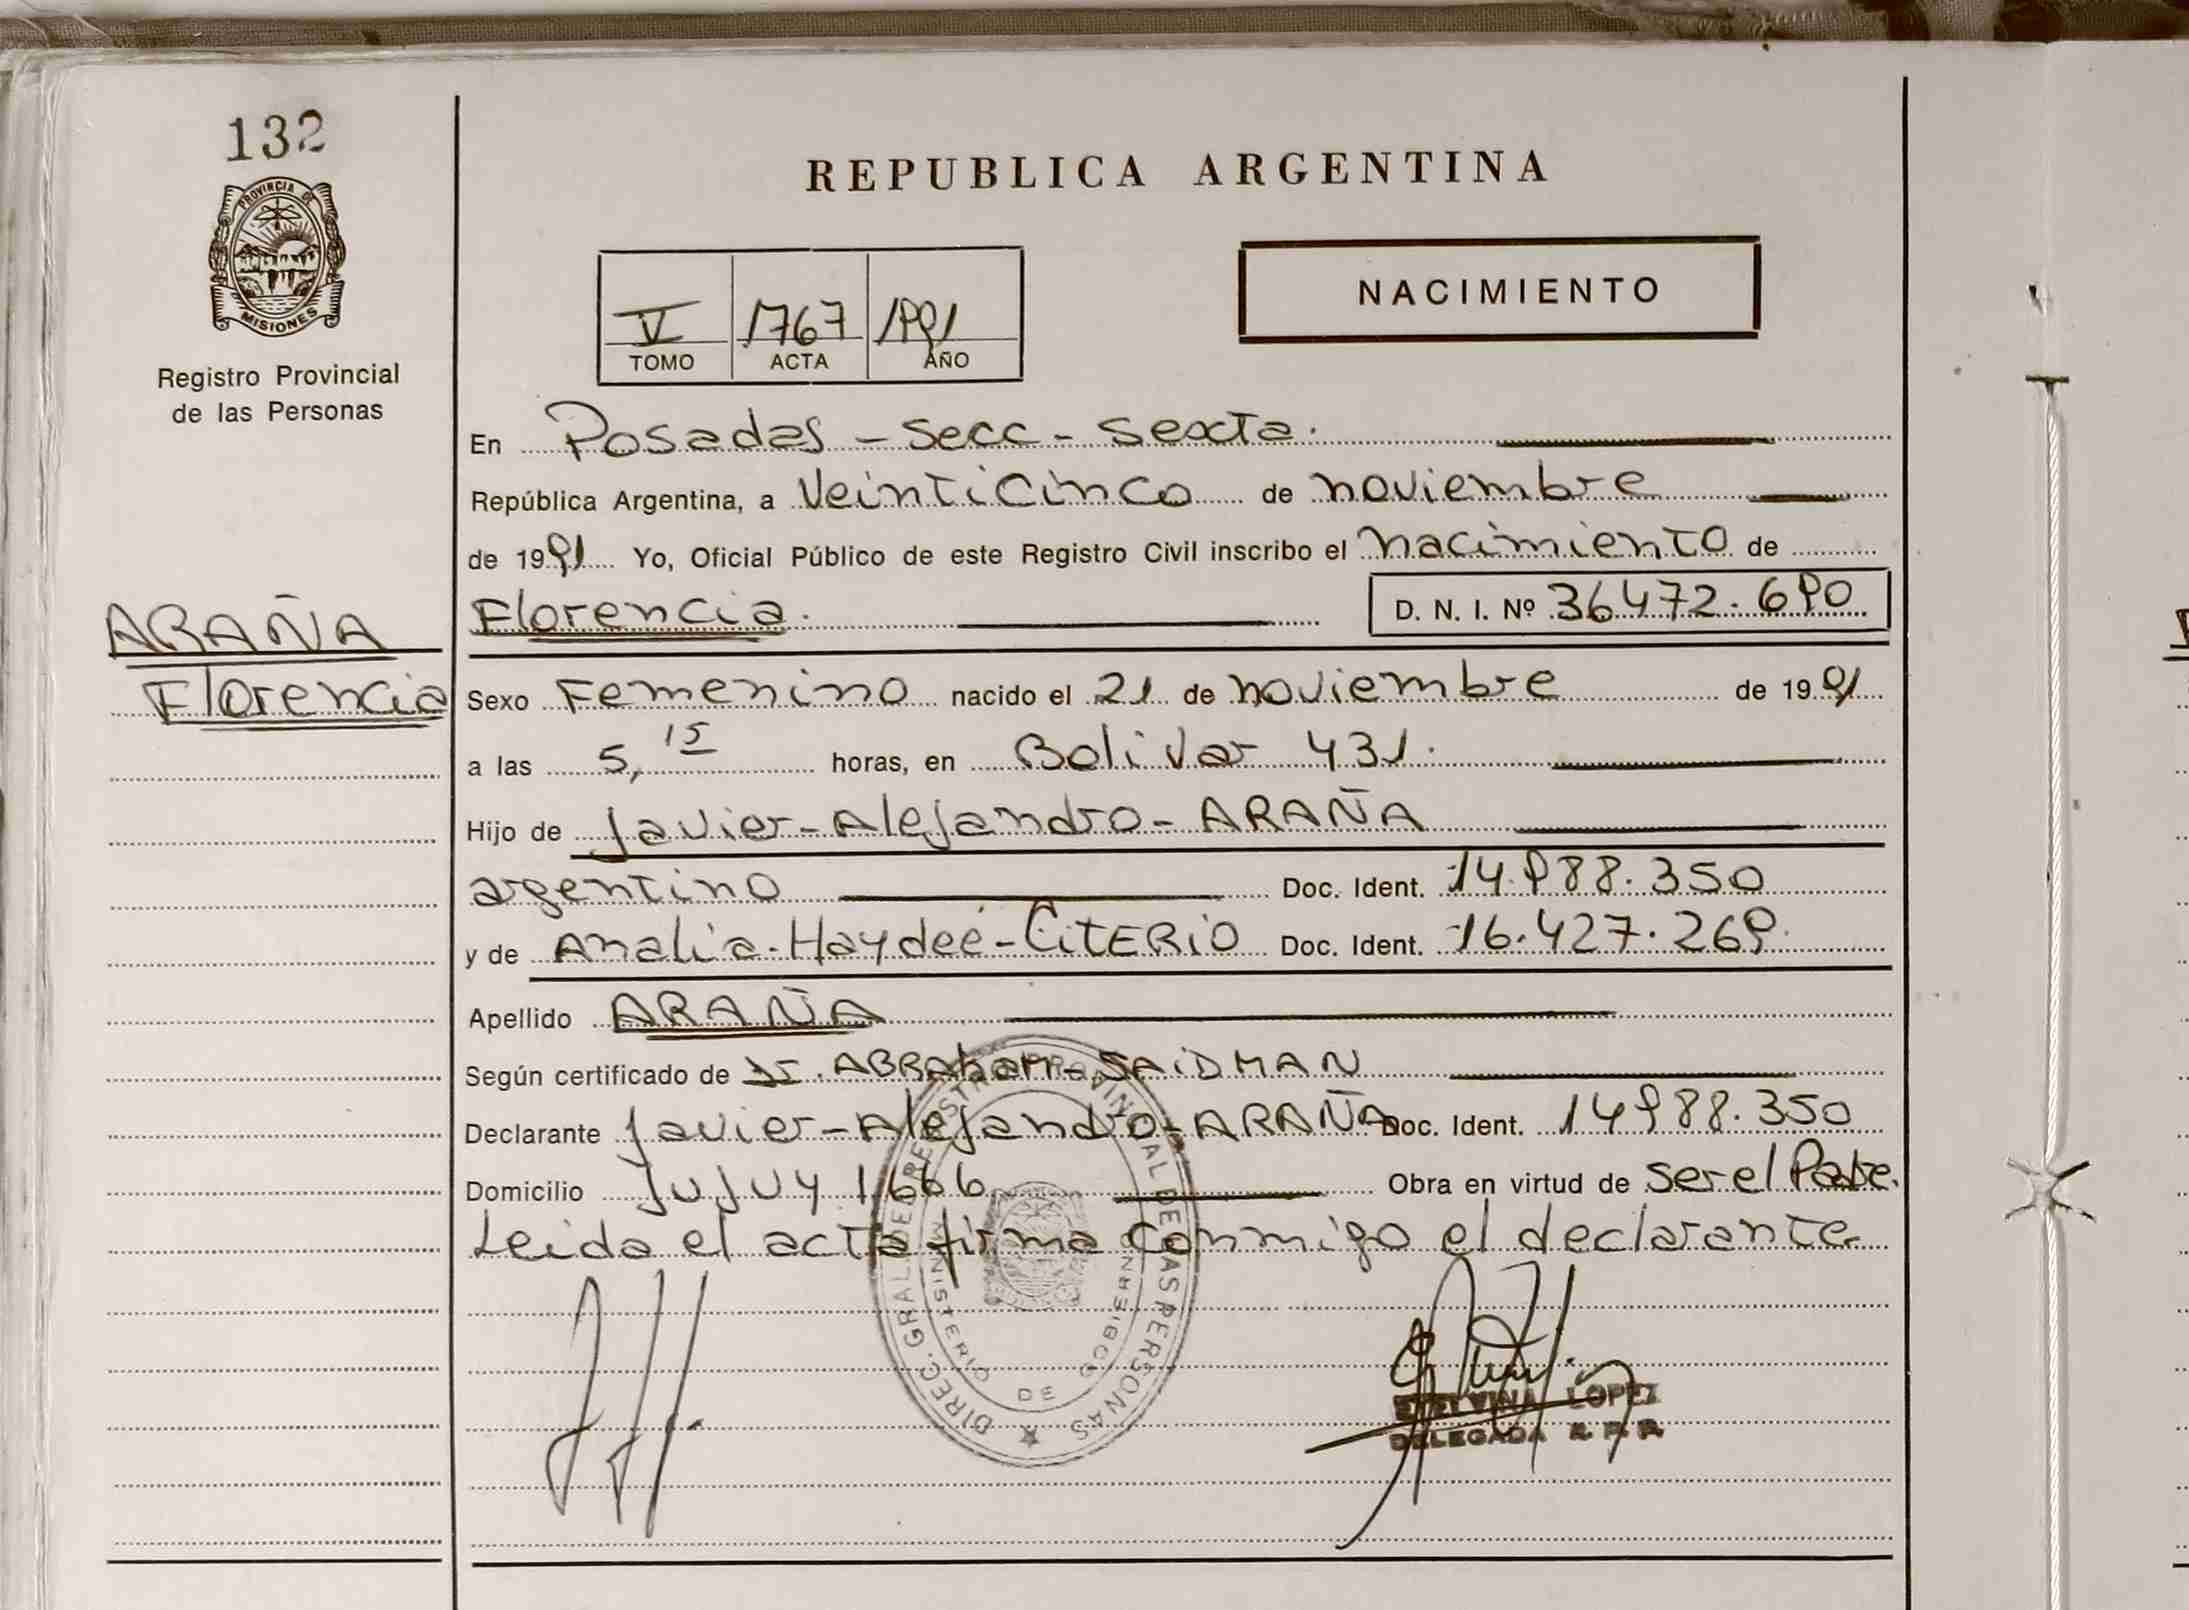 132
PROVINCIA DE
MISIONES
Registro Provincial
de las Personas
ARAÑA
Florencia
REPUBLICA ARGENTINA
NACIMIENTO
V 1767 1991
TOMO ACTA AÑO
En Posadas - secc - sexta.
República Argentina, a Veinticinco de noviembre
de 1991 Yo, Oficial Público de este Registro Civil inscribo el nacimiento de
Florencia. D. N. I. Nº 36472.690
Sexo Femenino nacido el 21 de noviembre de 1991
a las 5,15 horas, en Bolivar 431.
Hijo de Javier-Alejandro-ARAÑA
argentino Doc. Ident. 14.988.350
y de Analia-Haydeé-CITERIO Doc. Ident. 16.427.269.
Apellido ARAÑA
Según certificado de Dr. ABRAham-SAIDMAN
Declarante Javier-Alejandro-ARAÑA Doc. Ident. 14988.350
Domicilio JUJUY 1666 Obra en virtud de ser el Padre.
Leida el acta firma conmigo el declarante
DIREC. GRAL. DEL REGISTRO PROVINCIAL DE LAS PERSONAS
MINISTERIO DE GOBIERNO
LOPEZ
DELEGADA R. P. P.